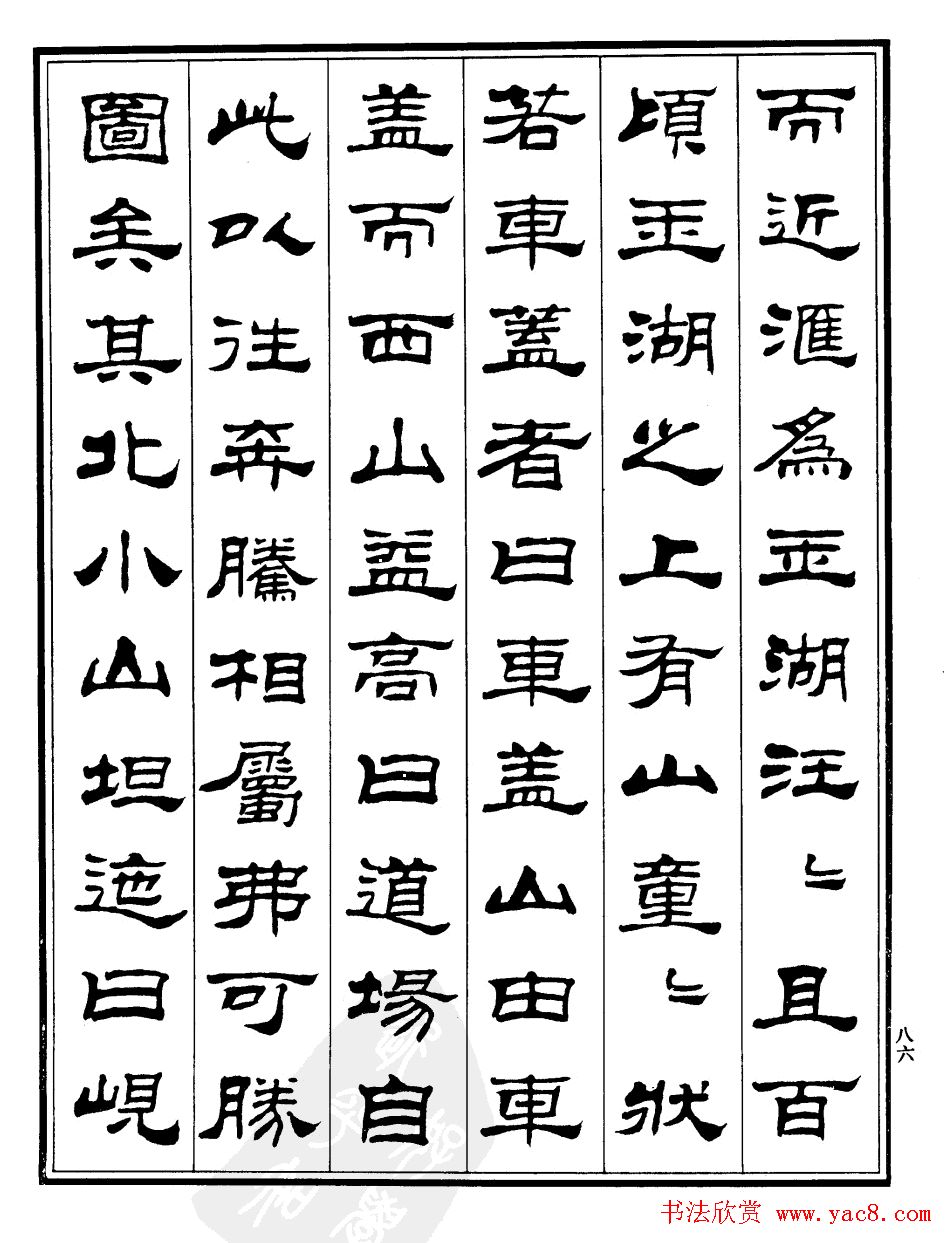 而近滙爲玉湖汪〻且百
頃玉湖之上有山童〻狀
若車蓋者曰車盖山由車
盖而西山益高曰道場自
此以往奔騰相屬弗可勝
圖矣其北小山坦迤曰峴
八六
书法欣赏 www.yac8.com